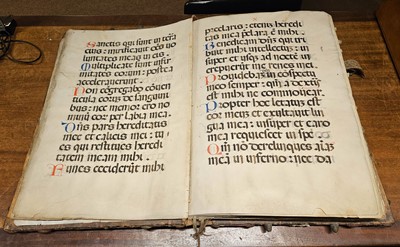 Sanctis qui sunt in terra
eius: mirificavit oēs vo
luntates meas in eis.
Multiplicate sunt infir
mitates eorum: postea
acceleraverunt.
Non cōgregabo conven
ticula eorum de sanguini
bus: nec memor ero no
minū eor per labia mea.
Dn̄s pars hereditatis
mee et calicis mei: tu
es qui restitues heredi
tatem meam mihi.
Funes ceciderūt mihi
preclaris: etenim heredi
tas mea p̄clara ē mihi.
Benedicam dn̄m qui tri
buit mihi intellectū: in
super et usq; ad noctē in
crepuerūt me renes mei.
Providebā in conspectu
meo semper: qm̄ a dextris
est mihi ne commovear.
Propter hoc letatum est
cor meum et exultavit lin
gua mea: insuper et caro
mea requiescet in spe.
Qm̄ nō derelinques aīam
meā in inferno: nec da